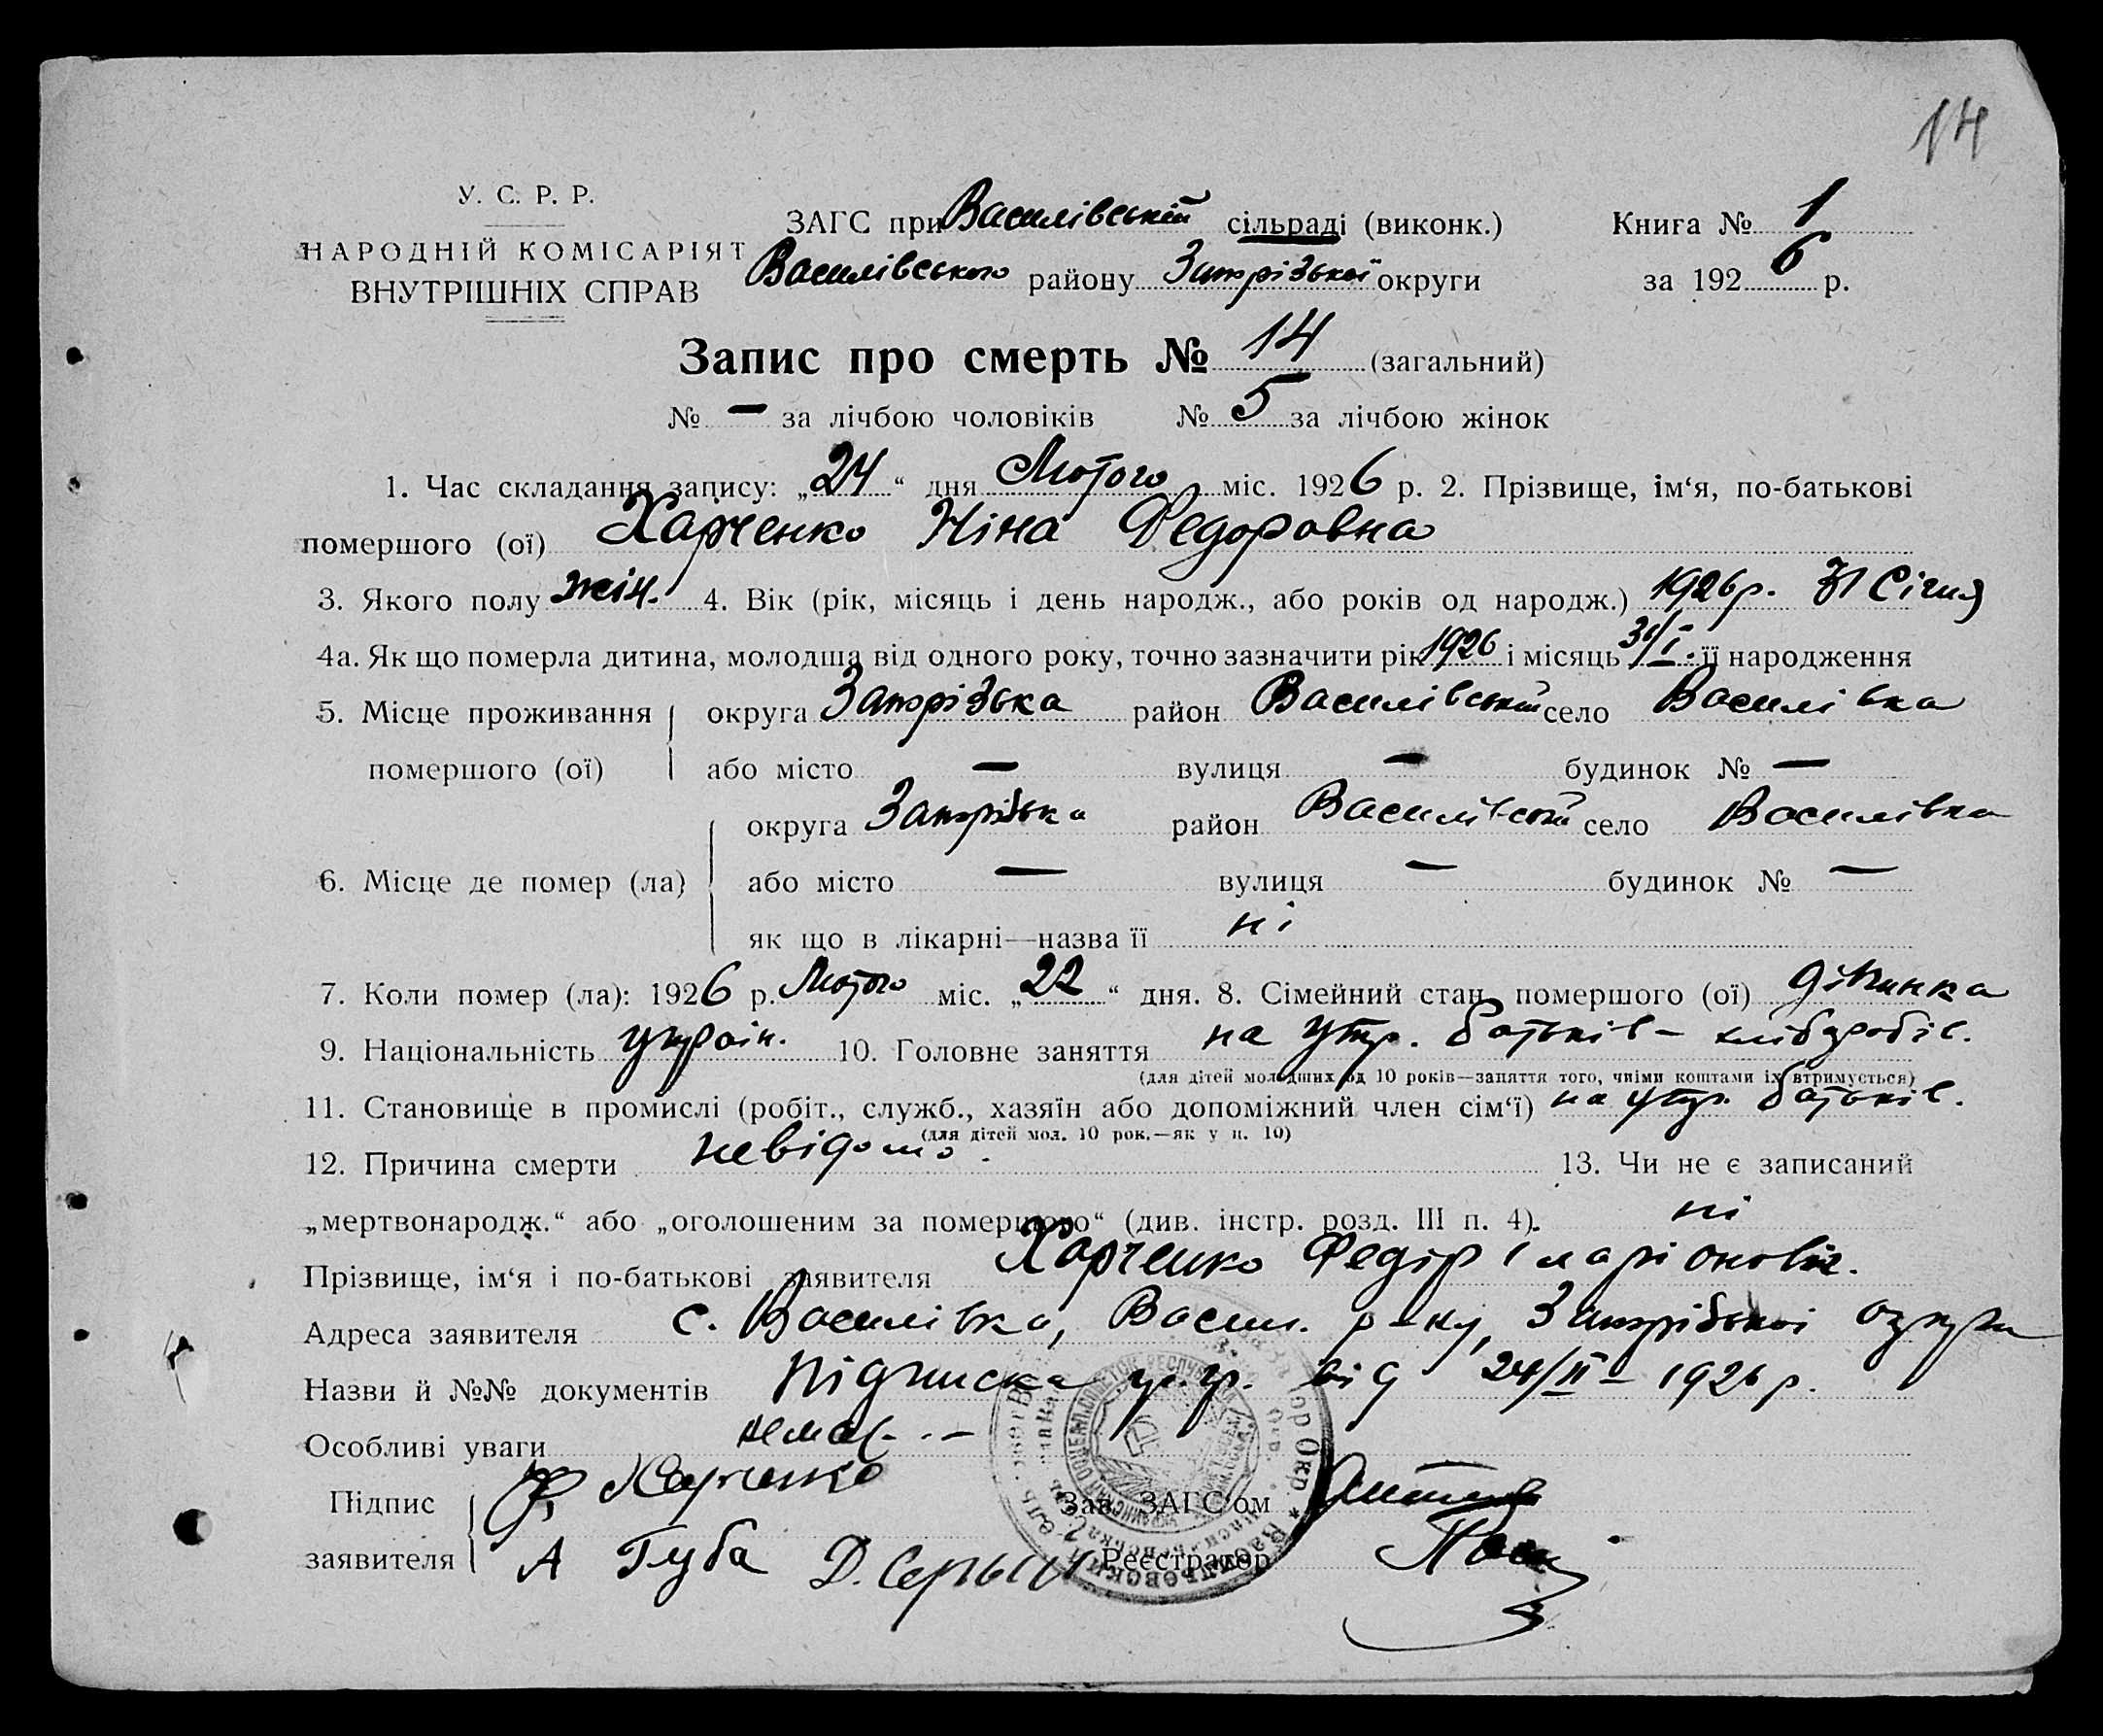 14
У. С. Р. Р.
НАРОДНІЙ КОМІСАРІЯТ
ВНУТРІШНІХ СПРАВ
ЗАГС при Василівській сільраді (виконк.)
Василівського району Запорізької округи
Книга № 1
за 1926 р.
Запис про смерть № 14 (загальний)
№ — за лічбою чоловіків № 5 за лічбою жінок
1. Час складання запису: „24“ дня Лютого міс. 1926 р. 2. Прізвище, ім‘я, по-батькові
помершого (ої) Харченко Ніна Федоровна
3. Якого полу жін. 4. Вік (рік, місяць і день народж., або років од народж.) 1926 р. 31 Січня
4а. Як що померла дитина, молодша від одного року, точно зазначити рік 1926 і місяць 31/I. її народження
5. Місце проживання округа Запорізька район Василівський село Василівка
помершого (ої) або місто — вулиця — будинок № —
округа Запорізька район Василівський село Василівка
6. Місце де помер (ла) або місто — вулиця — будинок № —
як що в лікарні—назва її ні
7. Коли помер (ла): 1926 р. Лютого міс. „22“ дня. 8. Сімейний стан помершого (ої) дітинка
9. Національність україн. 10. Головне заняття на утр. батьків – хліборобів.
(для дітей молодших од 10 років—заняття того, чиїми коштами їх втримується)
11. Становище в промислі (робіт., служб., хазяїн або допоміжний член сім‘ї) на утр. батьків.
(для дітей мол. 10 рок.—як у п. 10)
12. Причина смерти невідомо. 13. Чи не є записаний
„мертвонародж.“ або „оголошеним за помершого“ (див. інстр. розд. III п. 4). ні
Прізвище, ім‘я і по-батькові заявителя Харченко Федір Іларіонович.
Адреса заявителя с. Василівка, Васил. р-ну, Запорізької округи
Назви й №№ документів підписка від 24/II – 1926 р.
Особливі уваги немає. –
Підпис Ф Харченко Зав. ЗАГС‘ом
заявителя А Губа Д. Серый Реєстратор